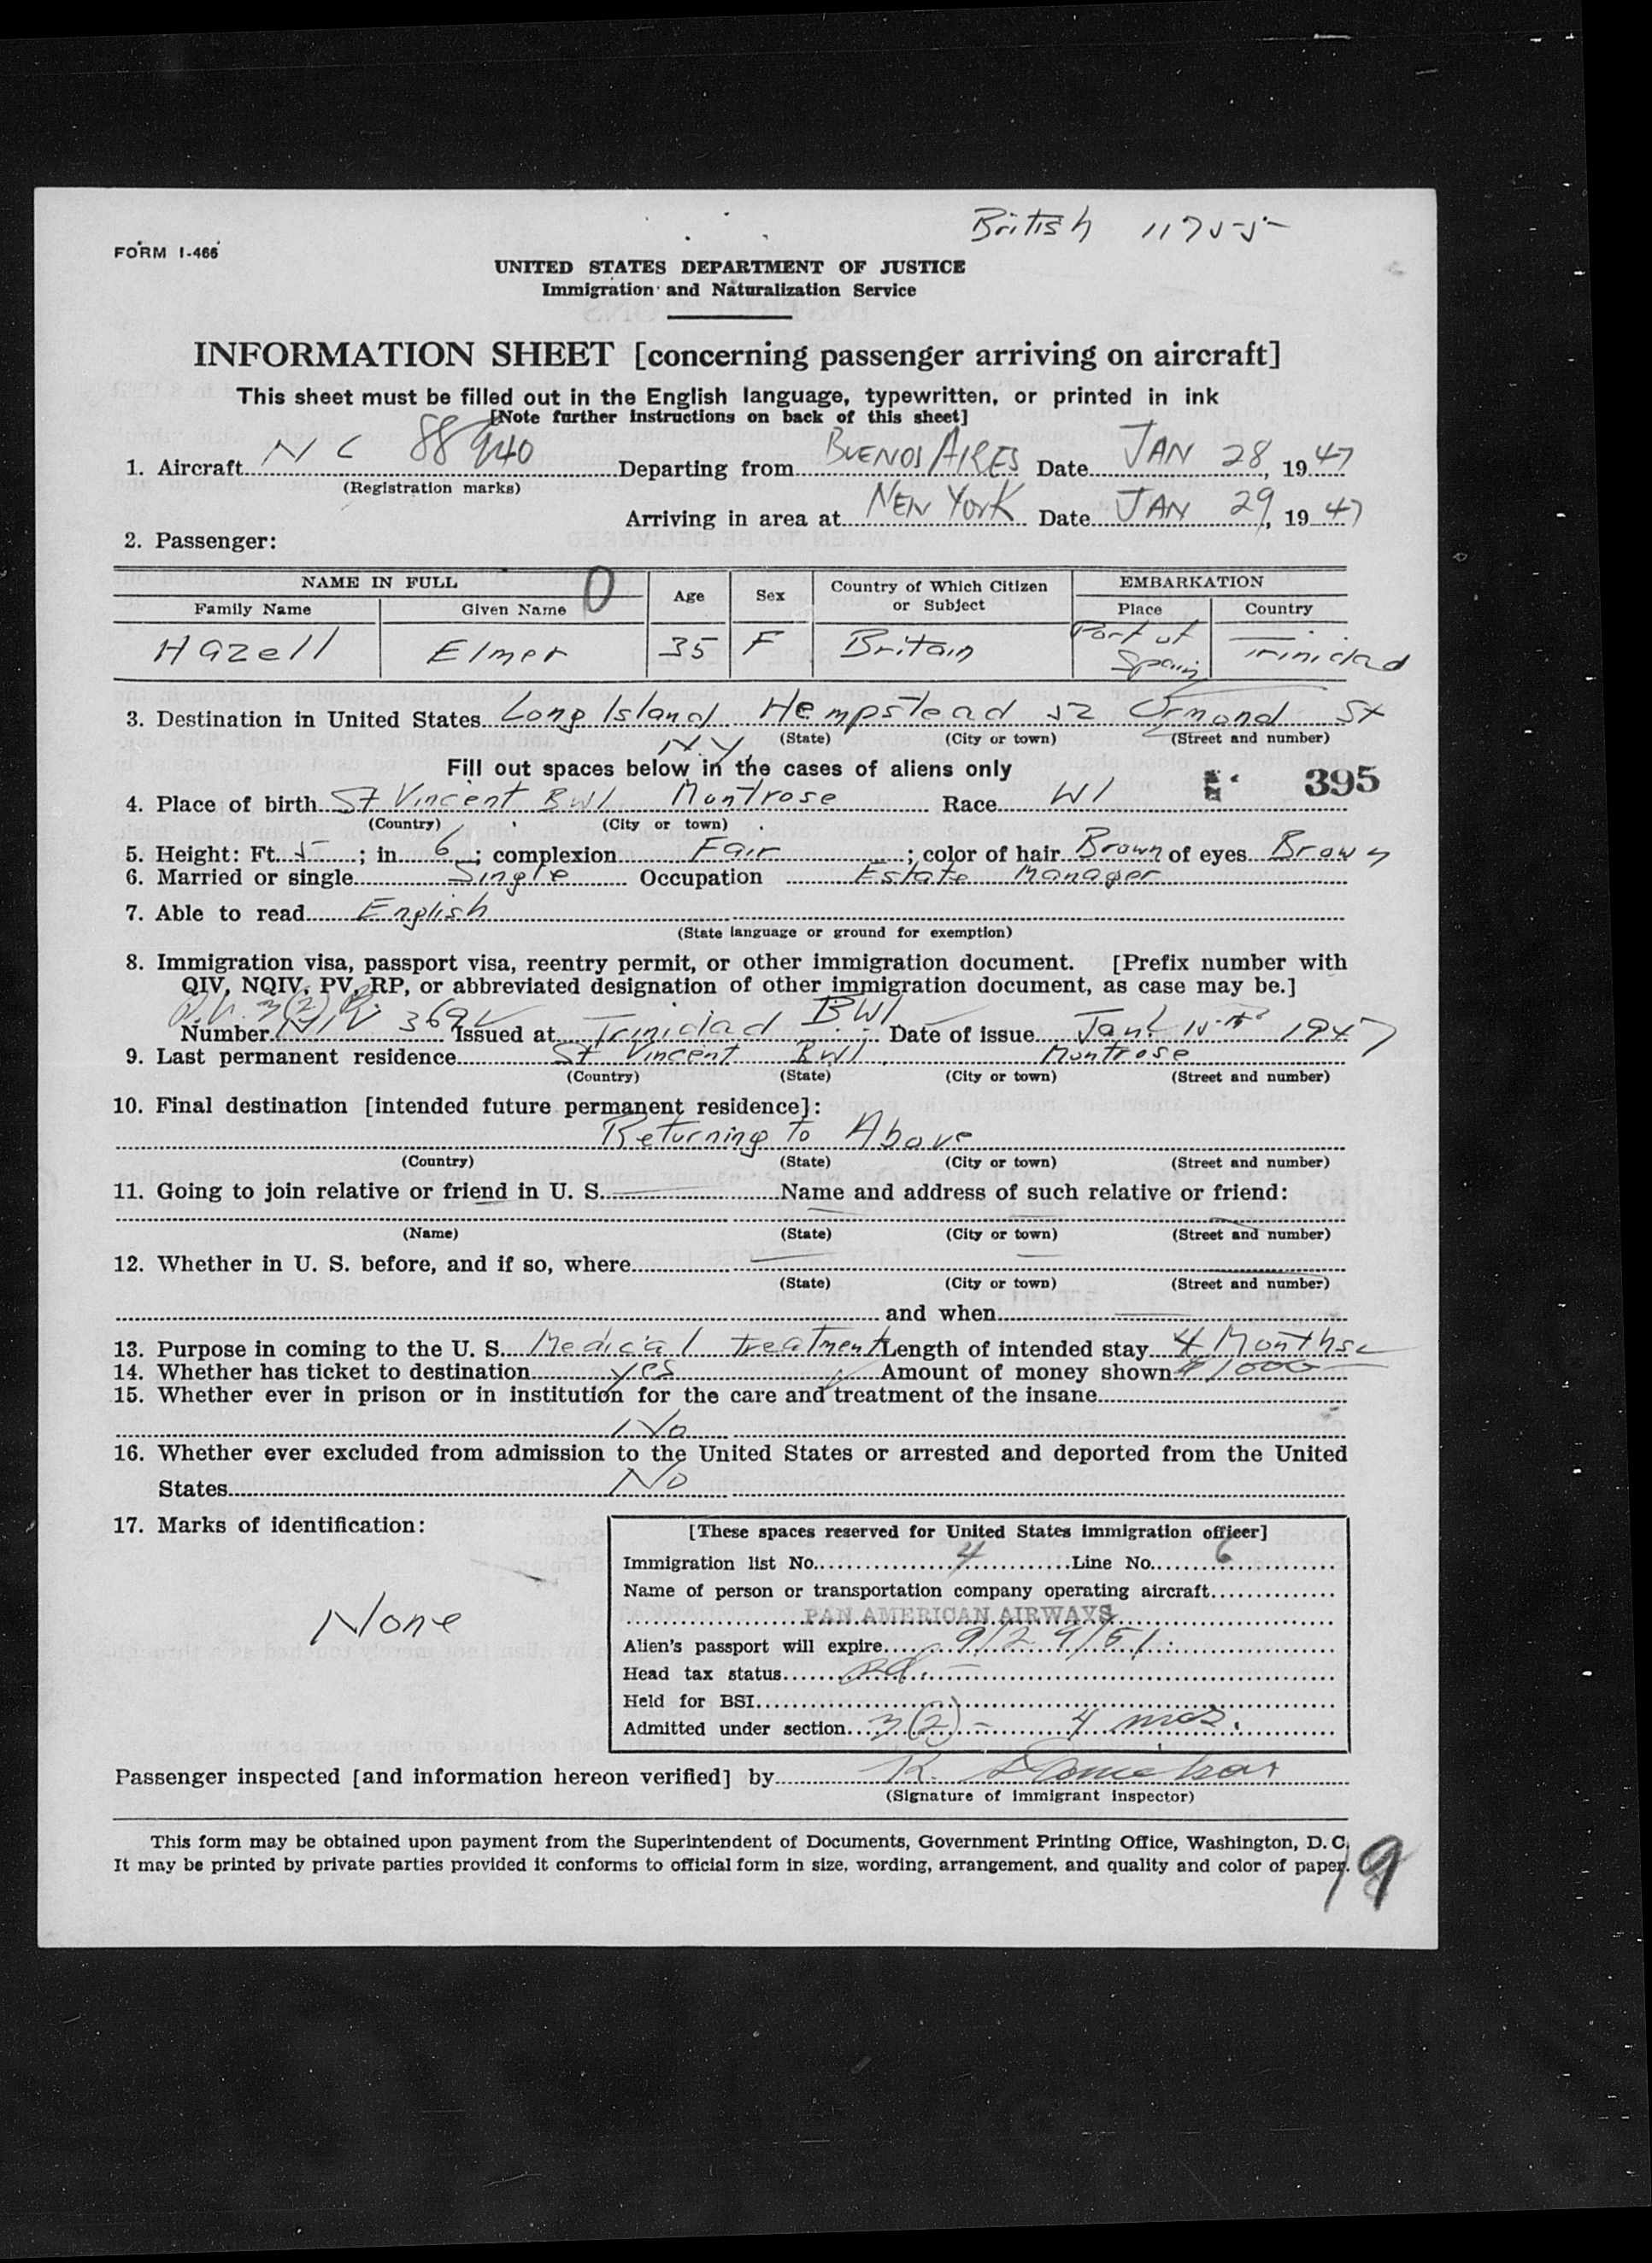 British 11755
FORM I-466
UNITED STATES DEPARTMENT OF JUSTICE
Immigration and Naturalization Service
INFORMATION SHEET [concerning passenger arriving on aircraft]
This sheet must be filled out in the English language, typewritten, or printed in ink
[Note further instructions on back of this sheet]
1. Aircraft NC 88940 Departing from BUENOS AIRES Date JAN 28, 1947
(Registration marks)
Arriving in area at NEW YORK Date JAN 29, 1947
2. Passenger:
NAME IN FULL O Age Sex Country of Which Citizen or Subject EMBARKATION
Family Name Given Name Place Country
Hazell Elmer 35 F Britain Port of Spain Trinidad
3. Destination in United States Long Island Hempstead 52 Ormond St
N.Y. (State) (City or town) (Street and number)
Fill out spaces below in the cases of aliens only
395
4. Place of birth St Vincent BWI Montrose Race WI
(Country) (City or town)
5. Height: Ft. 5; in. 6; complexion Fair; color of hair Brown of eyes Brown
6. Married or single Single Occupation Estate Manager
7. Able to read English
(State language or ground for exemption)
8. Immigration visa, passport visa, reentry permit, or other immigration document. [Prefix number with
QIV, NQIV, PV, RP, or abbreviated designation of other immigration document, as case may be.]
3(2)
Number 369 Issued at Trinidad BWI Date of issue 1947
9. Last permanent residence St Vincent BWI Montrose
(Country) (State) (City or town) (Street and number)
10. Final destination [intended future permanent residence]:
Returning to Above
(Country) (State) (City or town) (Street and number)
11. Going to join relative or friend in U. S. Name and address of such relative or friend:
(Name) (State) (City or town) (Street and number)
12. Whether in U. S. before, and if so, where
(State) (City or town) (Street and number)
and when
13. Purpose in coming to the U. S. Medical treatment Length of intended stay 4 Months
14. Whether has ticket to destination yes Amount of money shown $1000
15. Whether ever in prison or in institution for the care and treatment of the insane
No
16. Whether ever excluded from admission to the United States or arrested and deported from the United
States No
17. Marks of identification:
None
[These spaces reserved for United States immigration officer]
Immigration list No. 4 Line No. 6
Name of person or transportation company operating aircraft
PAN AMERICAN AIRWAYS
Alien's passport will expire 9/29/51
Head tax status pd.
Held for BSI
Admitted under section 3(2) - 4 mos.
Passenger inspected [and information hereon verified] by R.
(Signature of immigrant inspector)
This form may be obtained upon payment from the Superintendent of Documents, Government Printing Office, Washington, D. C.
It may be printed by private parties provided it conforms to official form in size, wording, arrangement, and quality and color of paper.
19